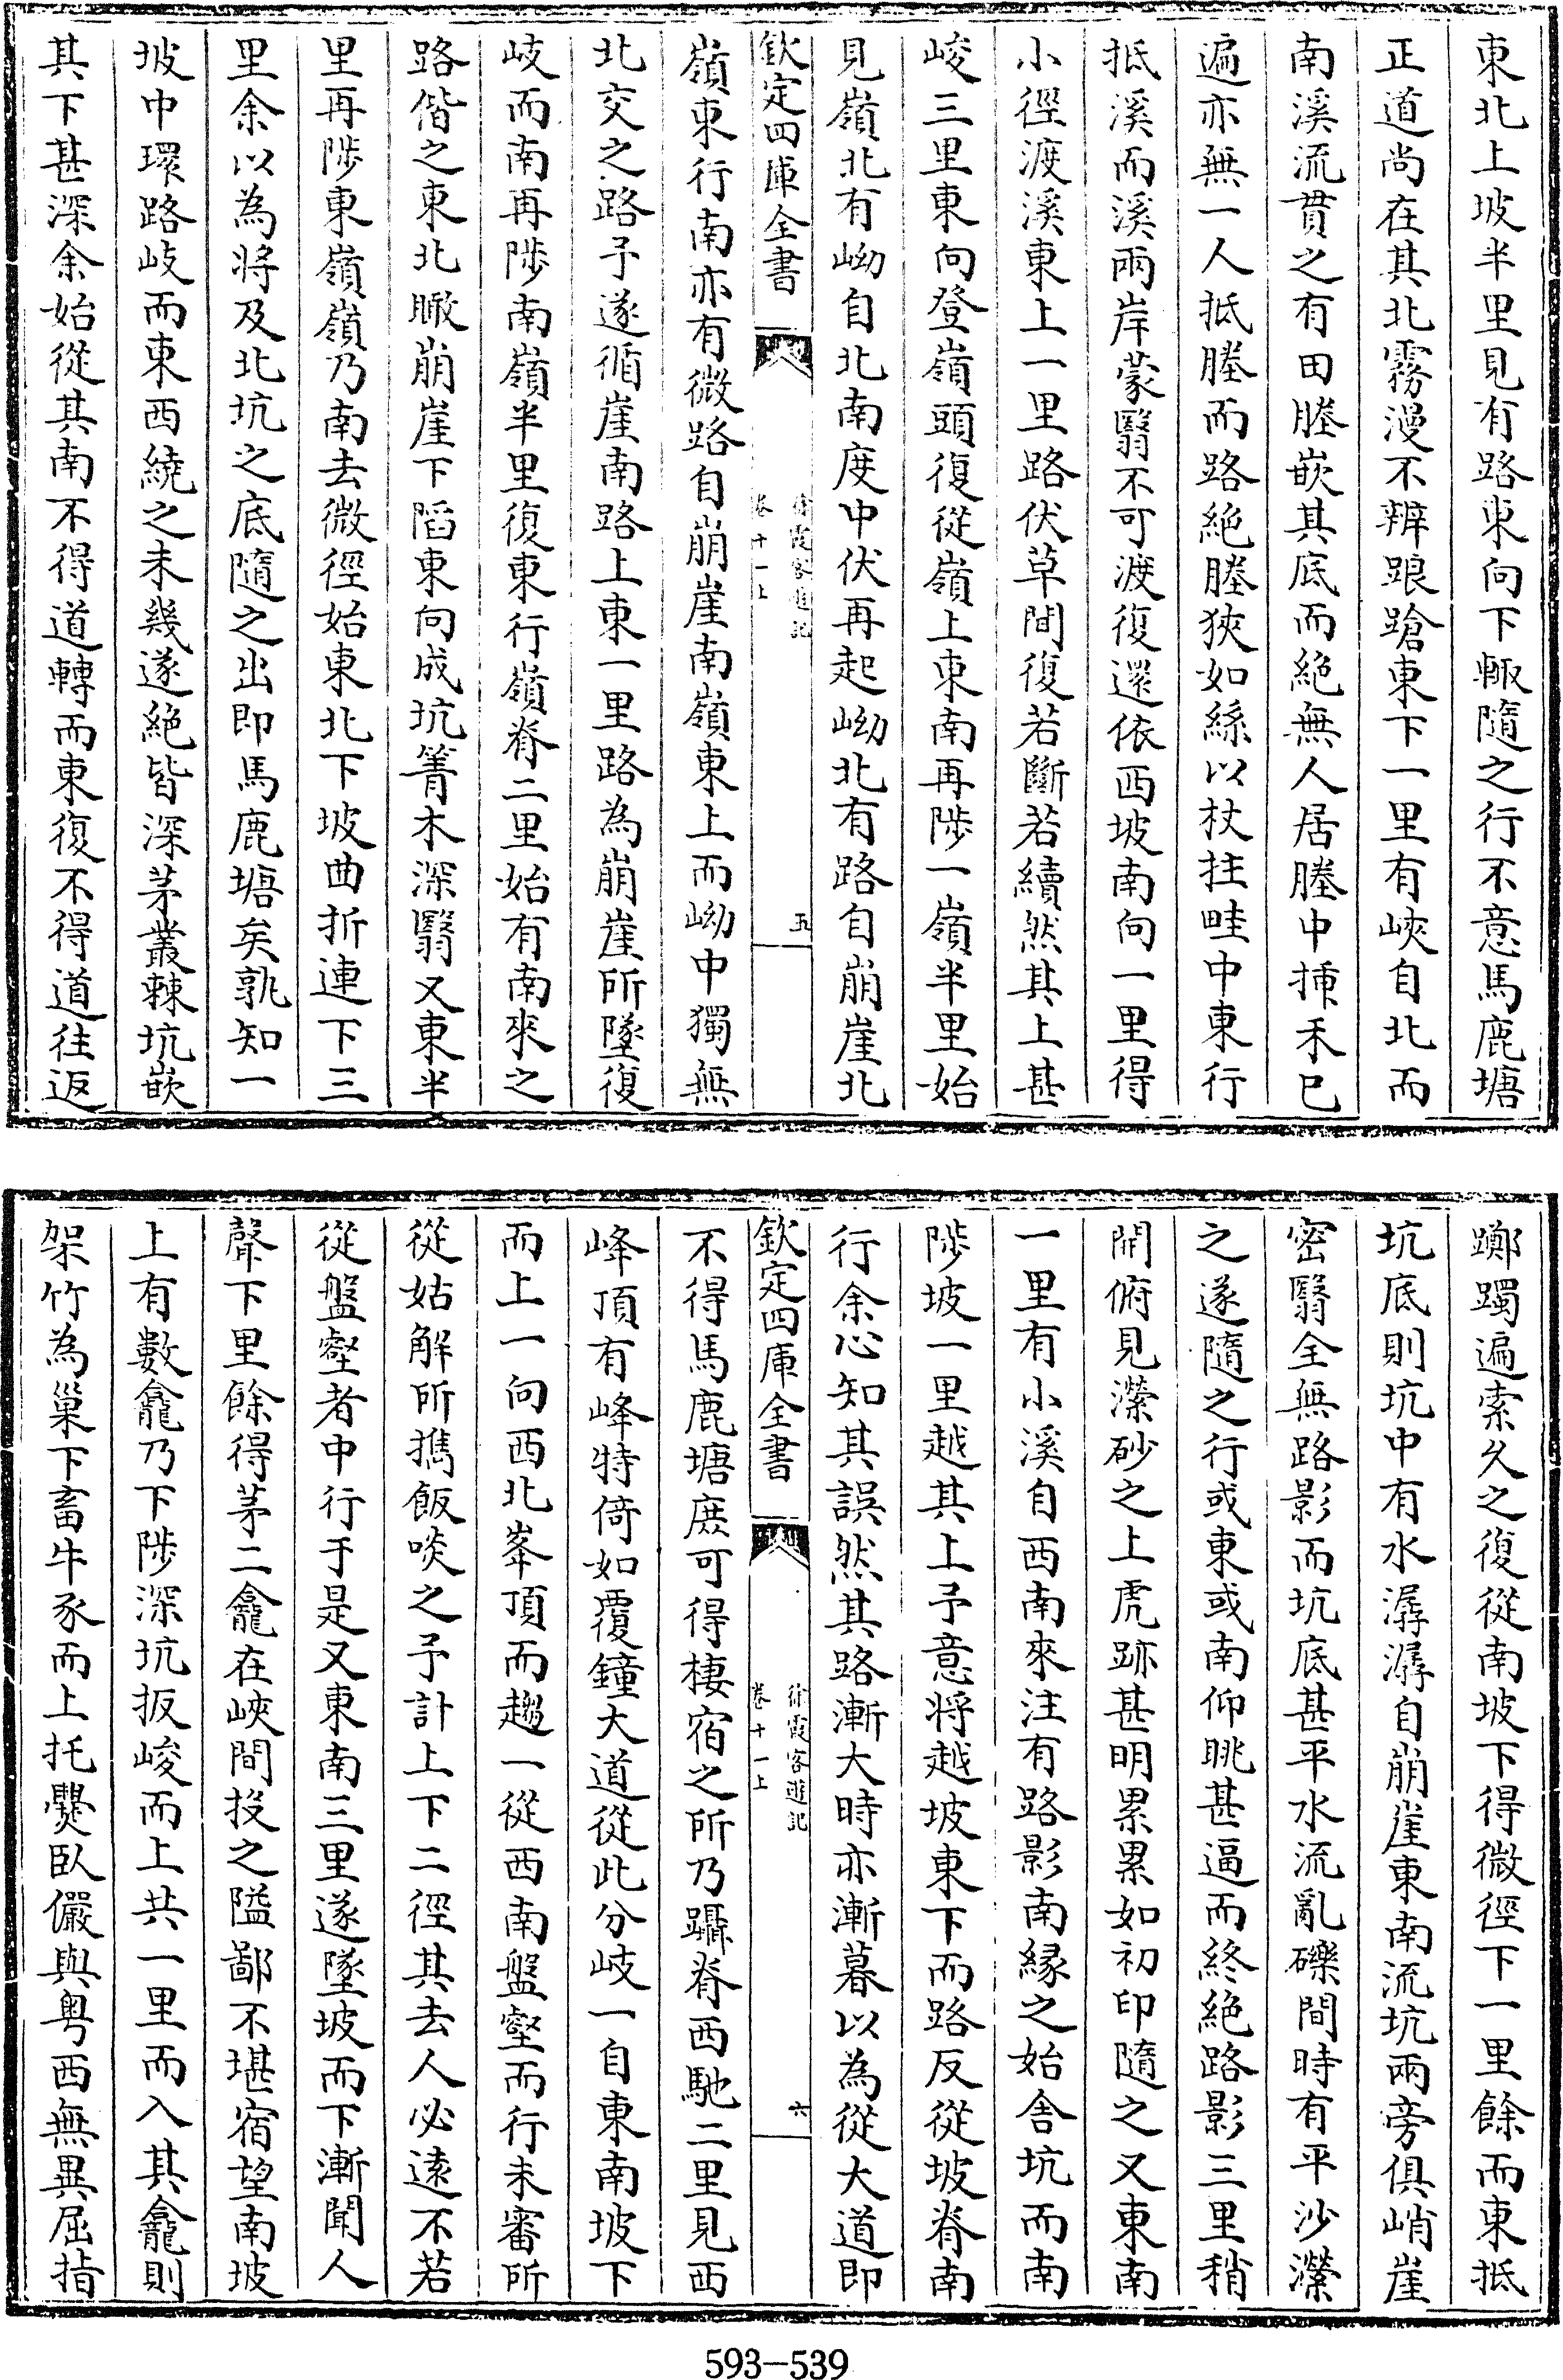 東北上坡半里見有路東向下輙隨之行不意馬鹿塘
正道尚在其北霧漫不辨踉蹌東下一里有峽自北而
南溪流貫之有田塍嵌其底而絶無人居塍中揷禾已
遍亦無一人抵塍而路絶塍狹如絲以杖拄畦中東行
抵溪而溪兩岸蒙翳不可渡復還依西坡南向一里得
小徑渡溪東上一里路伏草間復若斷若續然其上甚
峻三里東向登嶺頭復從嶺上東南再陟一嶺半里始
見嶺北有坳自北南度中伏再起坳北有路自崩崖北
欽定四庫全書
徐霞客遊記
卷十一上
五
嶺東行南亦有微路自崩崖南嶺東上而坳中獨無
北交之路予遂循崖南路上東一里路為崩崖所墜復
岐而南再陟南嶺半里復東行嶺脊二里始有南來之
路偕之東北瞰崩崖下䧟東向成坑箐木深翳又東半
里再陟東嶺嶺乃南去微徑始東北下坡曲折連下三
里余以為將及北坑之底隨之出即馬鹿塘矣孰知一
坡中環路岐而東西繞之未幾遂絶皆深茅叢棘坑嵌
其下甚深余始從其南不得道轉而東復不得道往返
躑躅遍索久之復從南坡下得微徑下一里餘而東抵
坑底則坑中有水潺潺自崩崖東南流坑兩旁俱峭崖
密翳全無路影而坑底甚平水流亂礫間時有平沙瀠
之遂隨之行或東或南仰眺甚逼而終絶路影三里稍
開俯見瀠砂之上虎跡甚明累累如初印隨之又東南
一里有小溪自西南來注有路影南緣之始舍坑而南
陟坡一里越其上予意將越坡東下而路反從坡脊南
行余心知其誤然其路漸大時亦漸暮以為從大道即
欽定四庫全書
徐霞客遊記
卷十一上
六
不得馬鹿塘庶可得棲宿之所乃躡脊西馳二里見西
峰頂有峰特倚如覆鐘大道從此分岐一自東南坡下
而上一向西北峯頂而趨一從西南盤壑而行未審所
從姑解所擕飯啖之予計上下二徑其去人必遠不若
從盤壑者中行于是又東南三里遂墜坡而下漸聞人
聲下里餘得茅二龕在峽間投之隘鄙不堪宿望南坡
上有數龕乃下陟深坑扳峻而上共一里而入其龕則
架竹為巢下畜牛豕而上托爨臥儼與粤西無異屈指
593-539